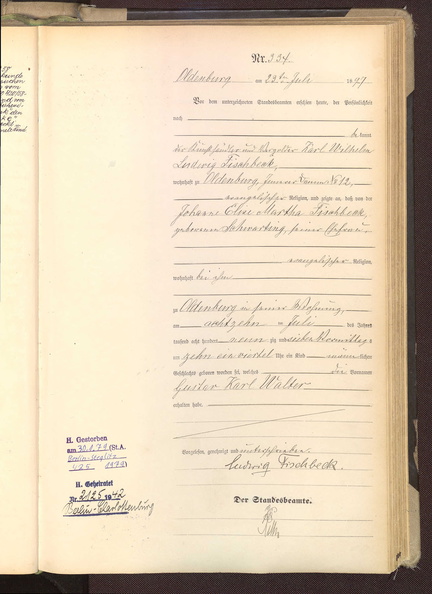 Nr. 334
Oldenburg am 23ten Juli 1897
Vor dem unterzeichneten Standesbeamten erschien heute, der Persönlichkeit
nach
be kannt
der Kunsthändler und Vergolder Karl Wilhelm
Ludwig Fischbeck,
wohnhaft zu Oldenburg, No 12,
evangelischer Religion, und zeigte an, daß von der
Johanne Elise Martha Fischbeck,
geborenen Schwarting, seiner Ehefrau
evangelischer Religion,
wohnhaft bei ihm
zu Oldenburg in seiner Wohnung,
am achtzehn ten Juli des Jahres
tausend acht hundert neunzig und sieben Vormittags
um zehn ein viertel Uhr ein Kind männlichen
Geschlechts geboren worden sei, welches die Vornamen
Gustav Karl Walter
erhalten habe.
Vorgelesen, genehmigt und unterschrieben
Ludwig Fischbeck.
Der Standesbeamte.
H. Gestorben
am 30.1.79 (St.A.
Berlin-Steglitz
425 1979)
H. Geheiratet
Nr. 2125 1942
Berlin-Charlottenburg